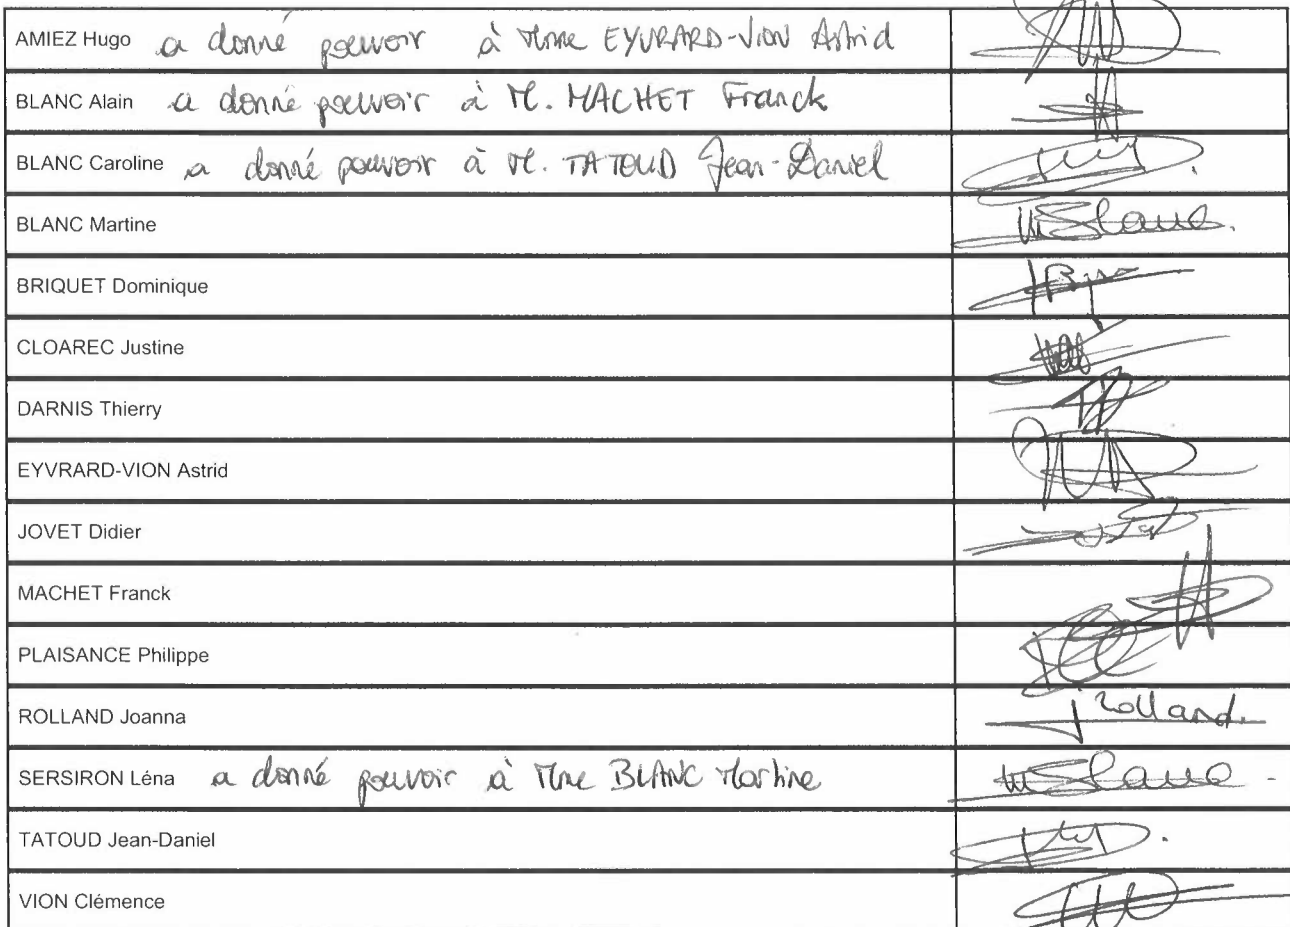 AMIEZ Hugo a donné pouvoir à Mme EYVRARD-VION Astrid
BLANC Alain a donné pouvoir à M. MACHET Franck
BLANC Caroline a donné pouvoir à M. TATOUD Jean-Daniel
BLANC Martine MBlanc.
BRIQUET Dominique
CLOAREC Justine
DARNIS Thierry
EYVRARD-VION Astrid
JOVET Didier
MACHET Franck
PLAISANCE Philippe
ROLLAND Joanna jRolland.
SERSIRON Léna a donné pouvoir à Mme BLANC Martine MBlanc
TATOUD Jean-Daniel
VION Clémence